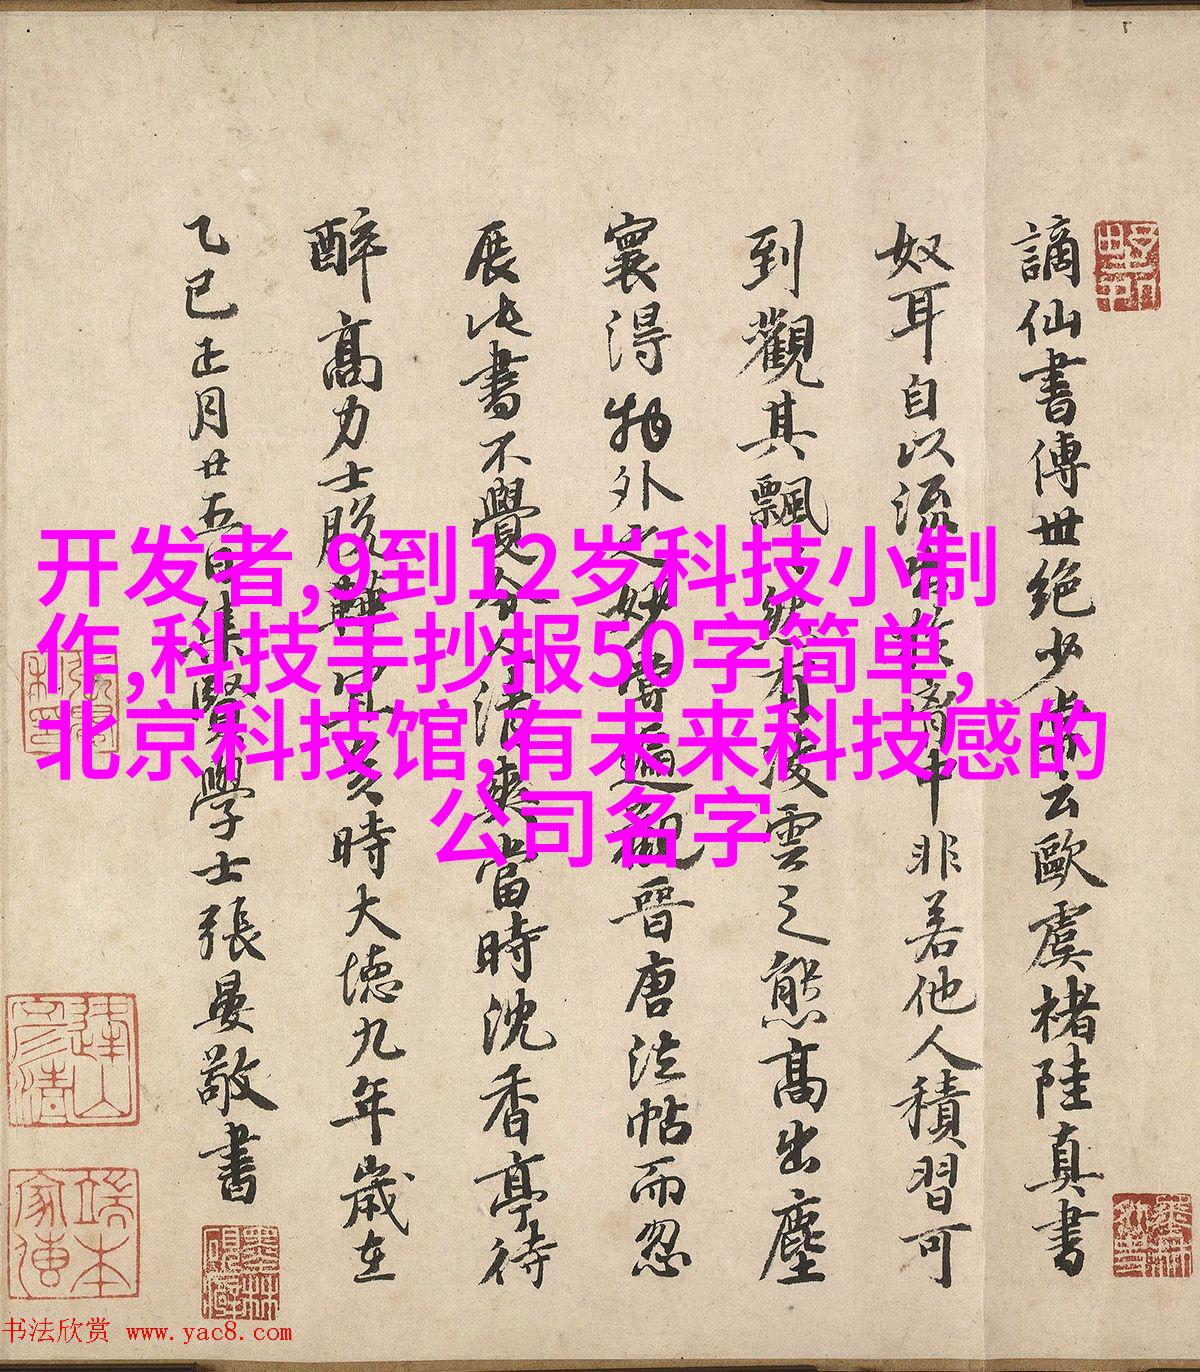 谪仙書傳世絶少嘗云歐虞褚陸真書
奴耳自以流出於胷中非若他人積習可
到觀其飄飄然有凌雲之態高出塵
寰得物外之妙嘗遍觀晉唐法帖而忽
展此書不覺令人清爽當時沈香亭待
醉高力士脱鞾宜矣時大德九年歲在
乙巳正月廿五日集賢學士張晏敬書
开发者,9到12岁科技小制
作,科技手抄报50字简单,
北京科技馆,有未来科技感的
公司名字
书法欣赏 www.yac8.com